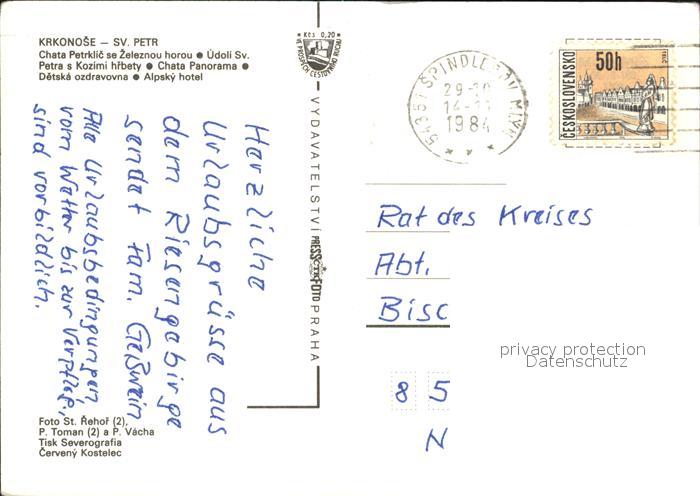 KRKONOŠE – SV. PETR
Chata Petrklíč se Železnou horou ● Údolí Sv.
Petra s Kozími hřbety ● Chata Panorama ●
Dětská ozdravovna ● Alpský hotel
Kčs 0,20
VE PROSPĚCH CESTOVNÍHO RUCHU
Herzliche
Urlaubsgrüsse aus
dem Riesengebirge
sendet Fam. Geßwein
Alle Urlaubsbedingungen
vom Wetter bis zur Verpfleg.
sind vorbildlich.
Foto St. Řehoř (2),
P. Toman (2) a P. Vácha
Tisk Severografia
Červený Kostelec
VYDAVATELSTVÍ PRESSFOTO PRAHA
ŠPINDLERŮV MLÝN
1984
50h
ČESKOSLOVENSKO
Rat des Kreises
Abt.
Bisc
8 5
N
privacy protection
Datenschutz